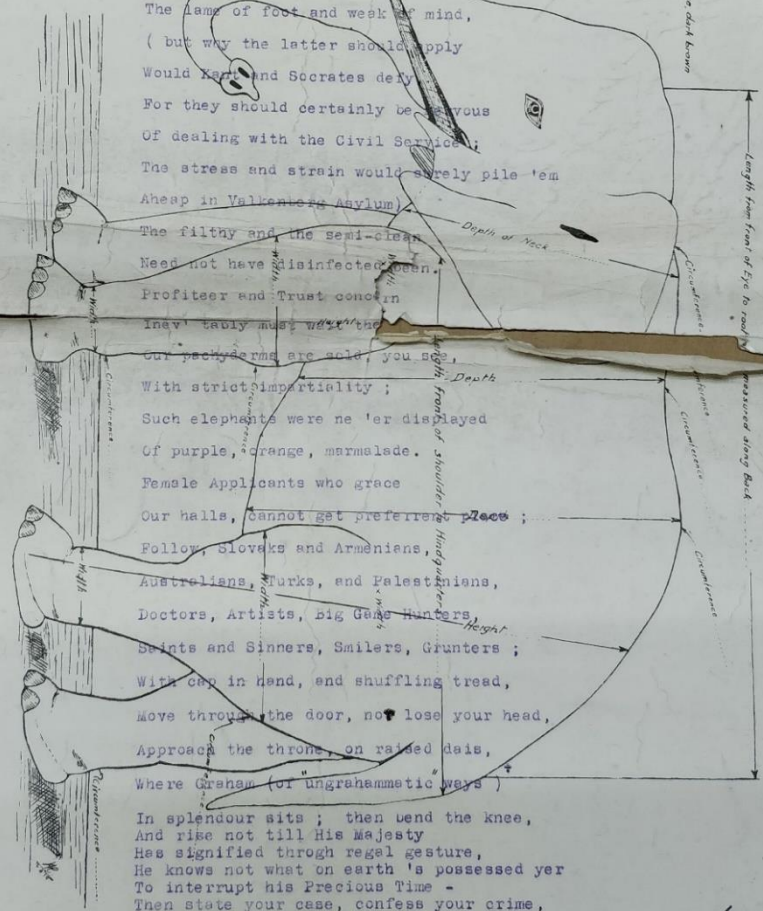 The lame of foot and weak of mind,
( but why the latter should apply
Would Kant and Socrates defy
For they should certainly be nervous
Of dealing with the Civil Service ;
The stress and strain would surely pile 'em
Aheap in Valkenberg Asylum)
The filthy and the semi-clean
Need not have disinfected been.
Profiteer and Trust concern
Inev' tably must wait the
Our pachyderms are sold, you see,
With strict impartiality ;
Such elephants were ne 'er displayed
Of purple, orange, marmalade.
Female Applicants who grace
Our halls, cannot get preferrent place ;
Follow, Slovaks and Armenians,
Australians, Turks, and Palestinians,
Doctors, Artists, Big Game Hunters,
Saints and Sinners, Smilers, Grunters ;
With cap in hand, and shuffling tread,
Move through the door, not lose your head,
Approach the throne, on raised dais,
Where Graham (of "ungrahammatic" ways )
In splendour sits ; then bend the knee,
And rise not till His Majesty
Has signified throgh regal gesture,
He knows not what on earth 's possessed yer
To interrupt his Precious Time -
Then state your case, confess your crime,
dark brown
Length from front of Eye to root measured along Back
Depth of Neck
Circumference
Width
Width
Width
Height
Depth
Length front of shoulder to Hindquarters
Circumference
Circumference
Circumference
Circumference
Circumference
Width
Width
Width
Height
Circumference